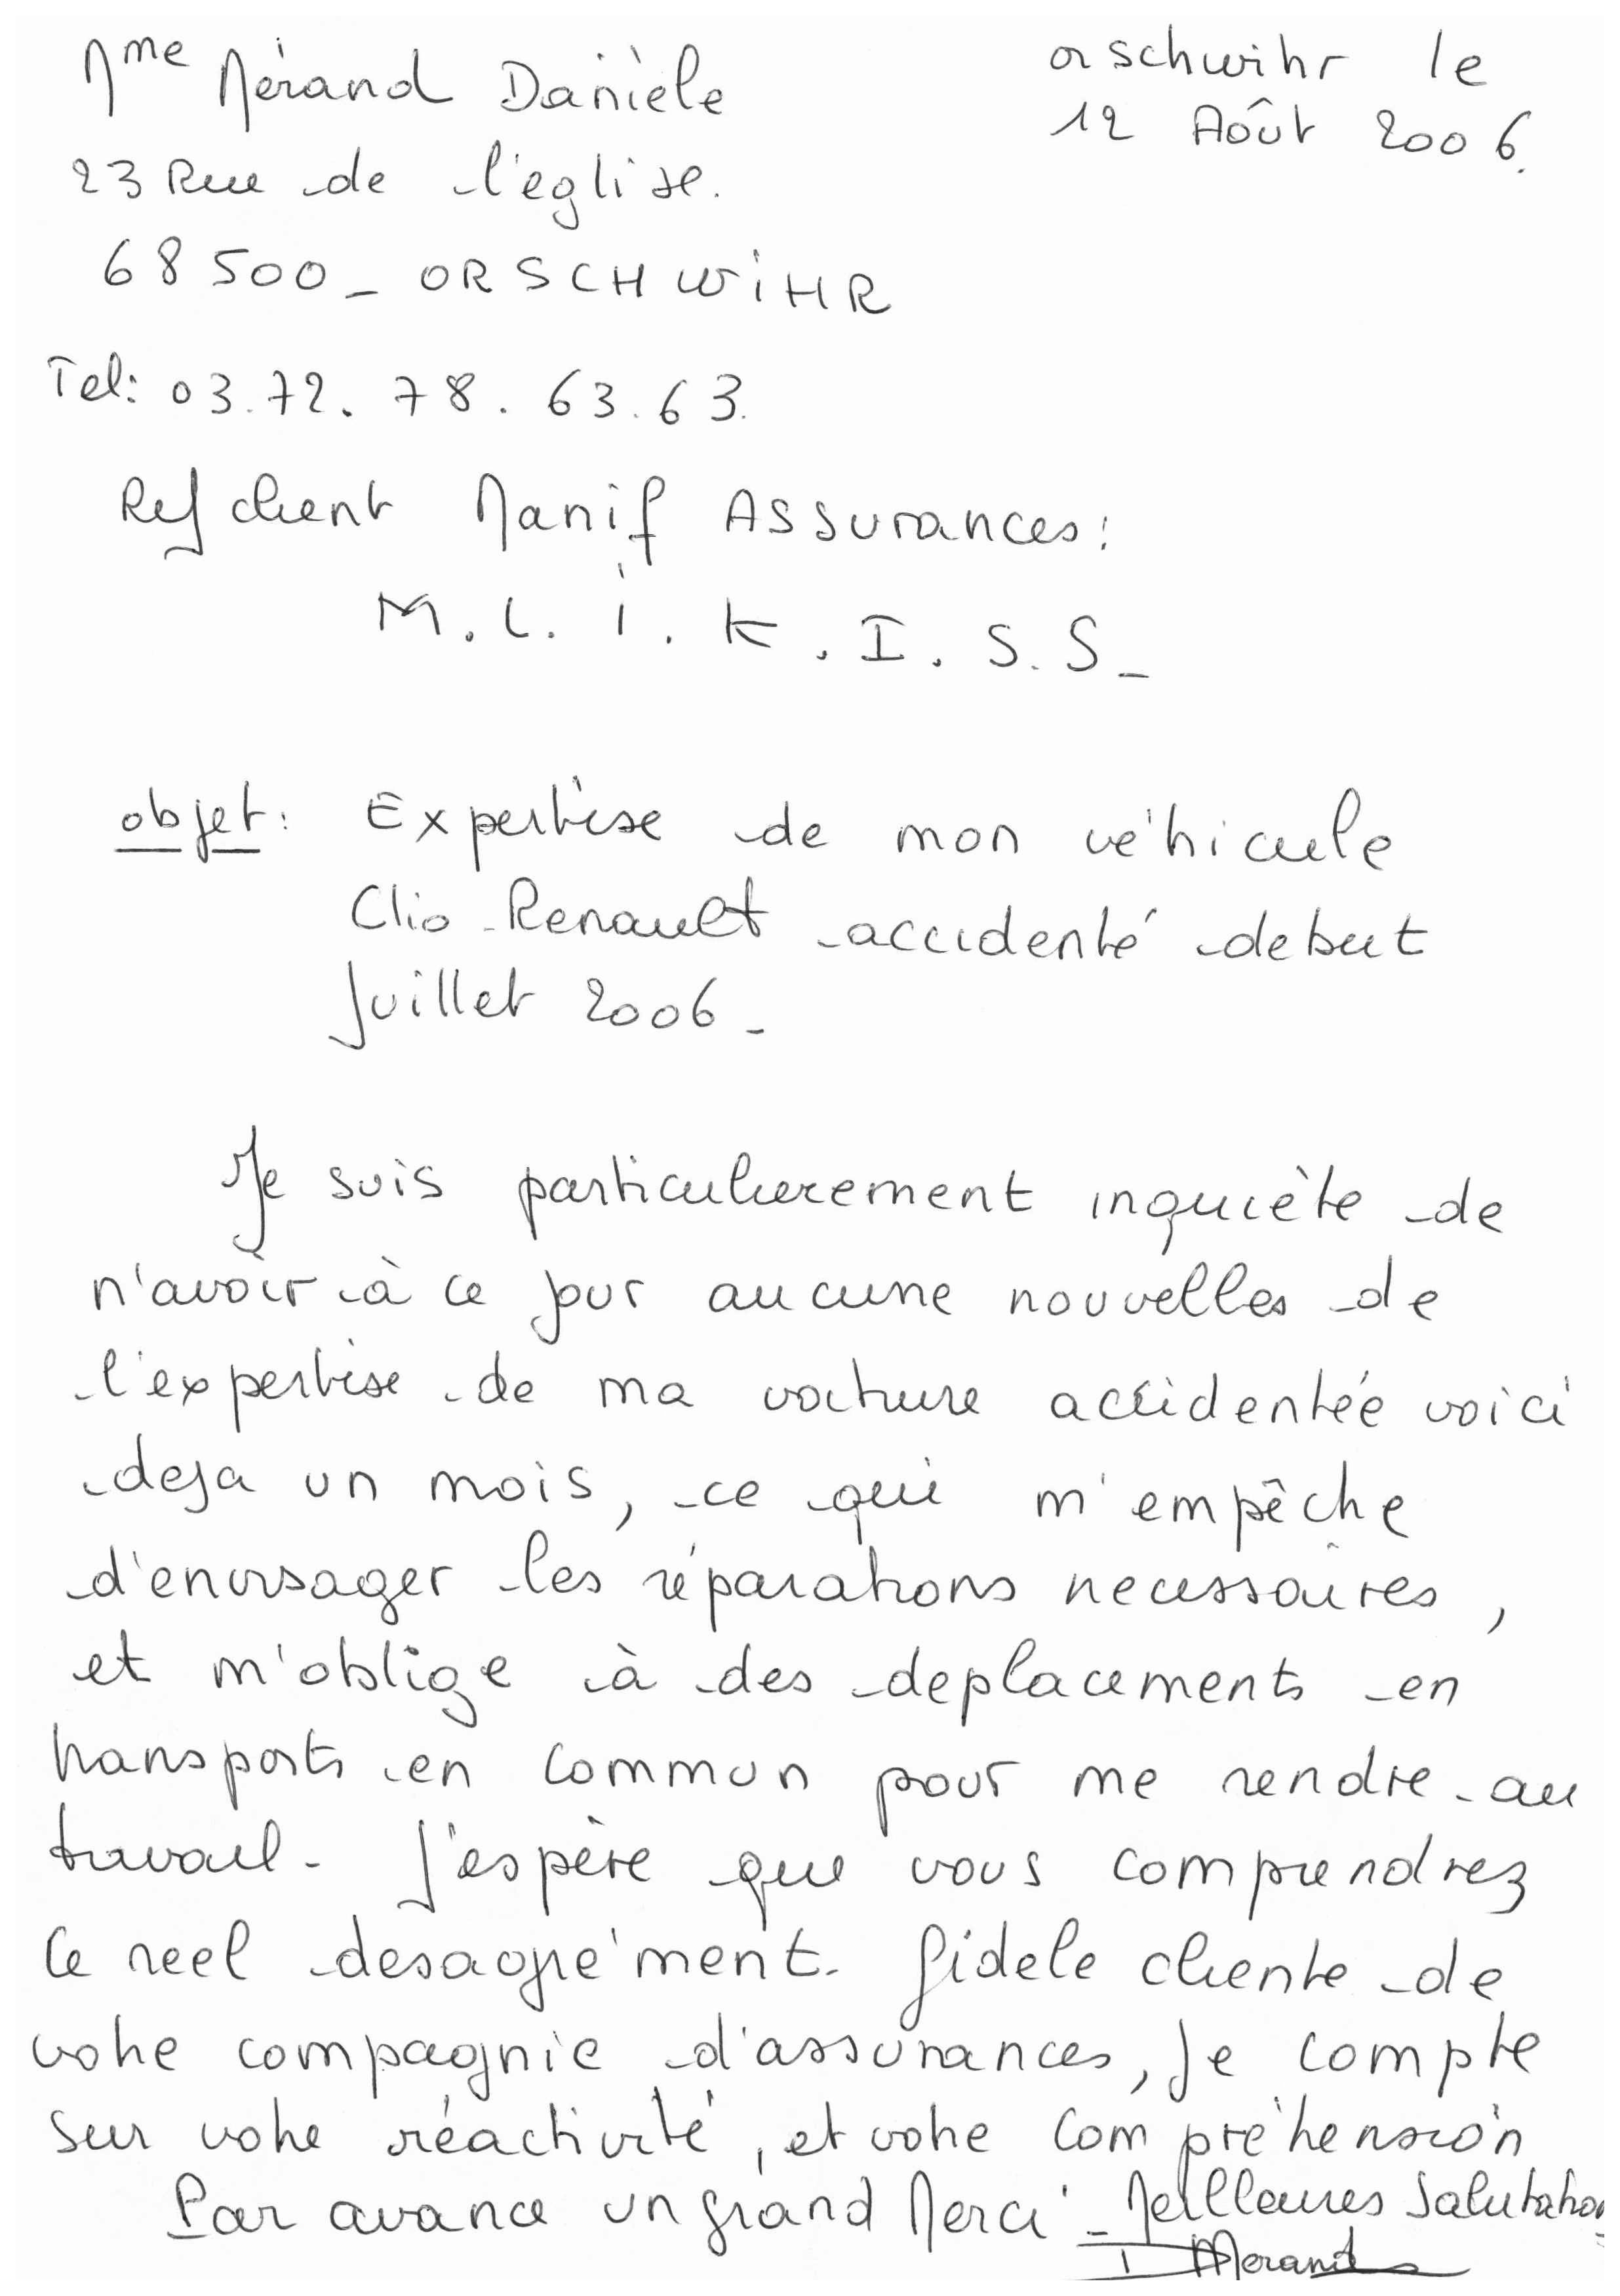 Mme Mérand Danièle
orschwihr le
12 Août 2006.
23 Rue de l'église.
68500_ ORSCHWiHR
Tel: 03.72.78.63.63.
Ref client Manif Assurances:
M.L.i.K.I.S.S_
objet: Expertise de mon véhicule
Clio Renault accidenté debut
Juillet 2006_
Je suis particulierement inquiète de
n'avoir à ce jour aucune nouvelles de
l'expertise de ma voiture accidentée voici
deja un mois, ce qui m'empêche
d'envisager les réparations necessaires,
et m'oblige à des deplacements en
transports en commun pour me rendre au
travail_ J'espère que vous comprendrez
ce reel desagrément. fidele cliente de
votre compagnie d'assurances, je compte
sur votre réactivité, et votre compréhension
Par avance un grand Merci_ Meilleures Salutations
D Merand